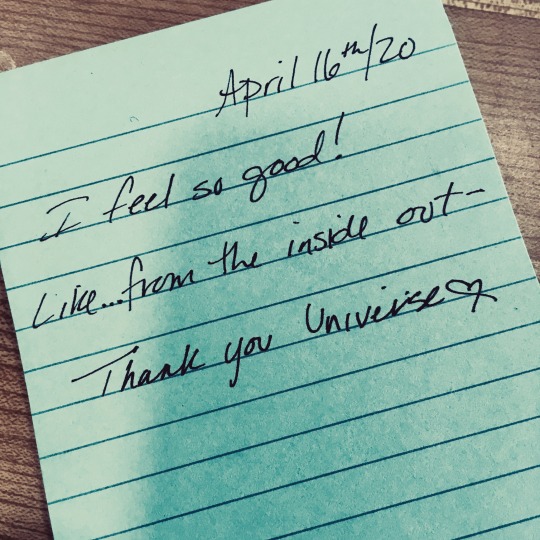 April 16th/20
I feel so good!
Like...from the inside out-
Thank you Universe♡